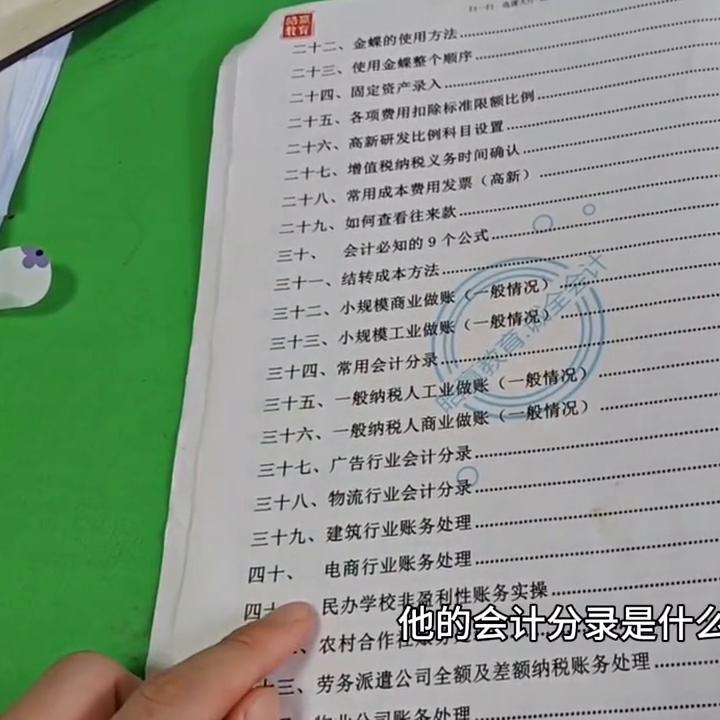 皓嘉
教育
二十二、金蝶的使用方法
二十三、使用金蝶整个顺序
二十四、固定资产录入
二十五、各项费用扣除标准限额比例
二十六、高新研发比例科目设置
二十七、增值税纳税义务时间确认
二十八、常用成本费用发票（高新）
二十九、如何查看往来款
三十、 会计必知的9个公式
三十一、结转成本方法
三十二、小规模商业做账（一般情况）
三十三、小规模工业做账（一般情况）
三十四、常用会计分录
三十五、一般纳税人工业做账（一般情况）
三十六、一般纳税人商业做账（一般情况）
三十七、广告行业会计分录
三十八、物流行业会计分录
三十九、建筑行业账务处理
四十、 电商行业账务处理
四十 民办学校非盈利性账务实操
农村合作社
十三、劳务派遣公司全额及差额纳税账务处理
物业公司账务处理
他的会计分录是什么